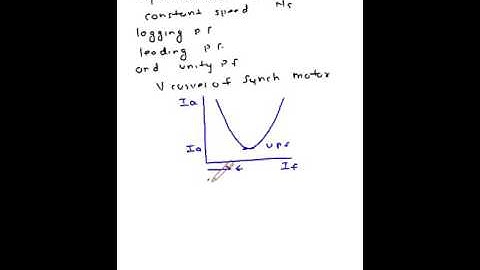 constant speed Ns
lagging pf
leading pf.
and unity pf
V curves of Synch motor
Ia
Ia
upf
If